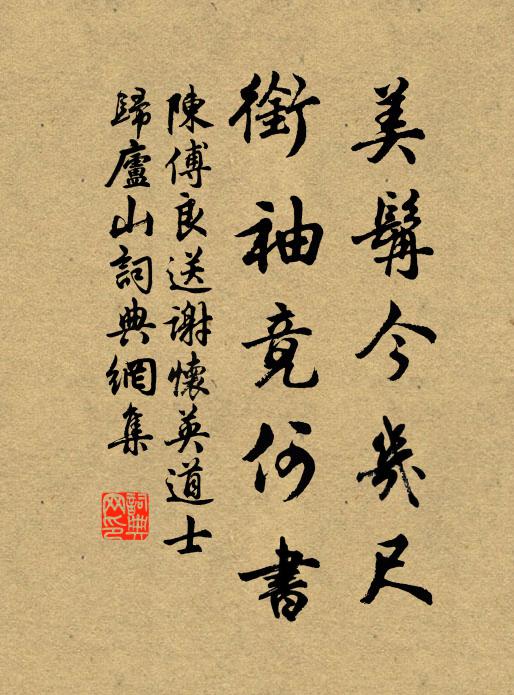 美髯今幾尺
銜袖竟何書
陳傅良送謝懷英道士
歸廬山詞典網集
詞典網印